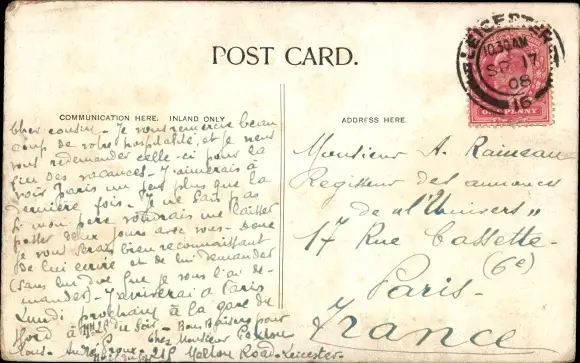 POST CARD.
LEICESTER
10.30AM
SP 17
08
ONE PENNY
COMMUNICATION HERE. INLAND ONLY
ADDRESS HERE.
Cher cousin - Je vous remercie beau
coup de votre hospitalité, et je veux
vous redemander celle-ci pour la
fin des vacances - J'aimerais à
voir Paris un peu plus que la
dernière fois. Je ne sais pas
si mon père voudrais me laisser
passer deux jours avec vous - Donc
je vous serais bien reconnaissant
de lui écrire et de lui demander
(sans lui dire que je vous l'ai de-
mander) - J'arriverai à Paris
Lundi prochain à la gare du
Nord à du soir - Bons Baisers pour
tous - André chez Monsieur
Melton Road - Leicester -
Monsieur A. Rameau
Régisseur des annonces
de "l'Univers"
17 Rue Cassette -
(6e)
Paris -
France